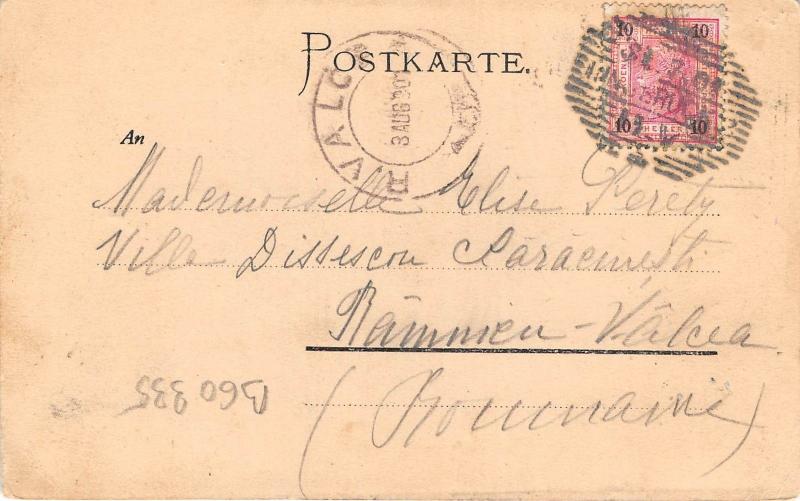 POSTKARTE.
10 10
HELLER
10 10
R. VALC
3 AUG 90
An
Mademoiselle Elise Perety
Villa Dissescou Părăcinești
Râmnicu-Vâlcea
(Roumanie)
B60 335